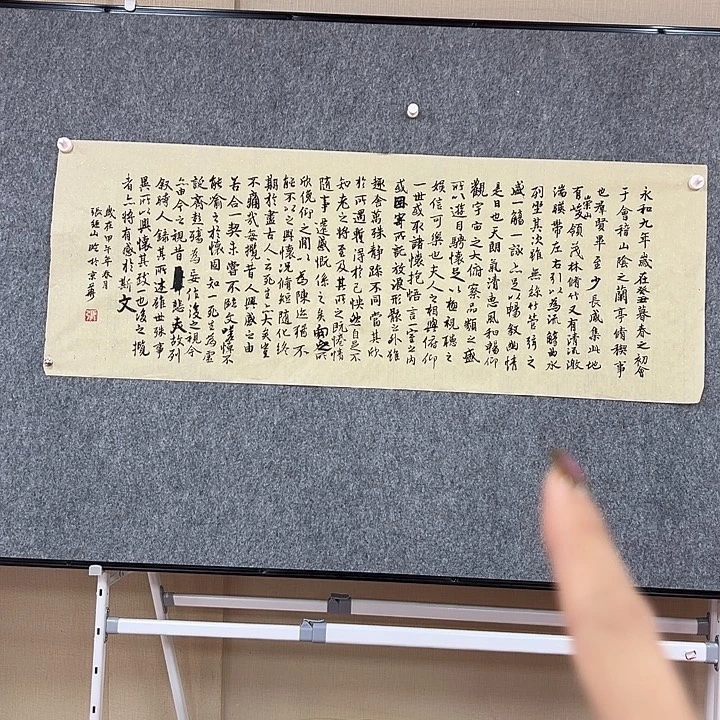 永和九年歲在癸丑暮春之初會
于會稽山陰之蘭亭脩稧事
也羣賢畢至少長咸集此地
有崇山峻領茂林脩竹又有清流激
湍暎帶左右引以為流觴曲水
列坐其次雖無絲竹管弦之
盛一觴一詠亦足以暢敘幽情
是日也天朗氣清惠風和暢仰
觀宇宙之大俯察品類之盛
所以遊目騁懷足以極視聽之
娛信可樂也夫人之相與俯仰
一世或取諸懷抱悟言一室之內
或因寄所託放浪形骸之外雖
趣舍萬殊靜躁不同當其欣
於所遇暫得於己怏然自足不
知老之將至及其所之既惓情
隨事遷感慨係之矣向之所
欣俛仰之間以為陳迹猶不
能不以之興懷況脩短隨化終
期於盡古人云死生亦大矣豈
不痛哉每攬昔人興感之由
若合一契未嘗不臨文嗟悼不
能喻之於懷固知一死生為虛
誕齊彭殤為妄作後之視今
亦由今之視昔悲夫故列
敘時人錄其所述雖世殊事
異所以興懷其致一也後之攬
者亦將有感於斯文
歲在甲午年春月
張山臨於京華